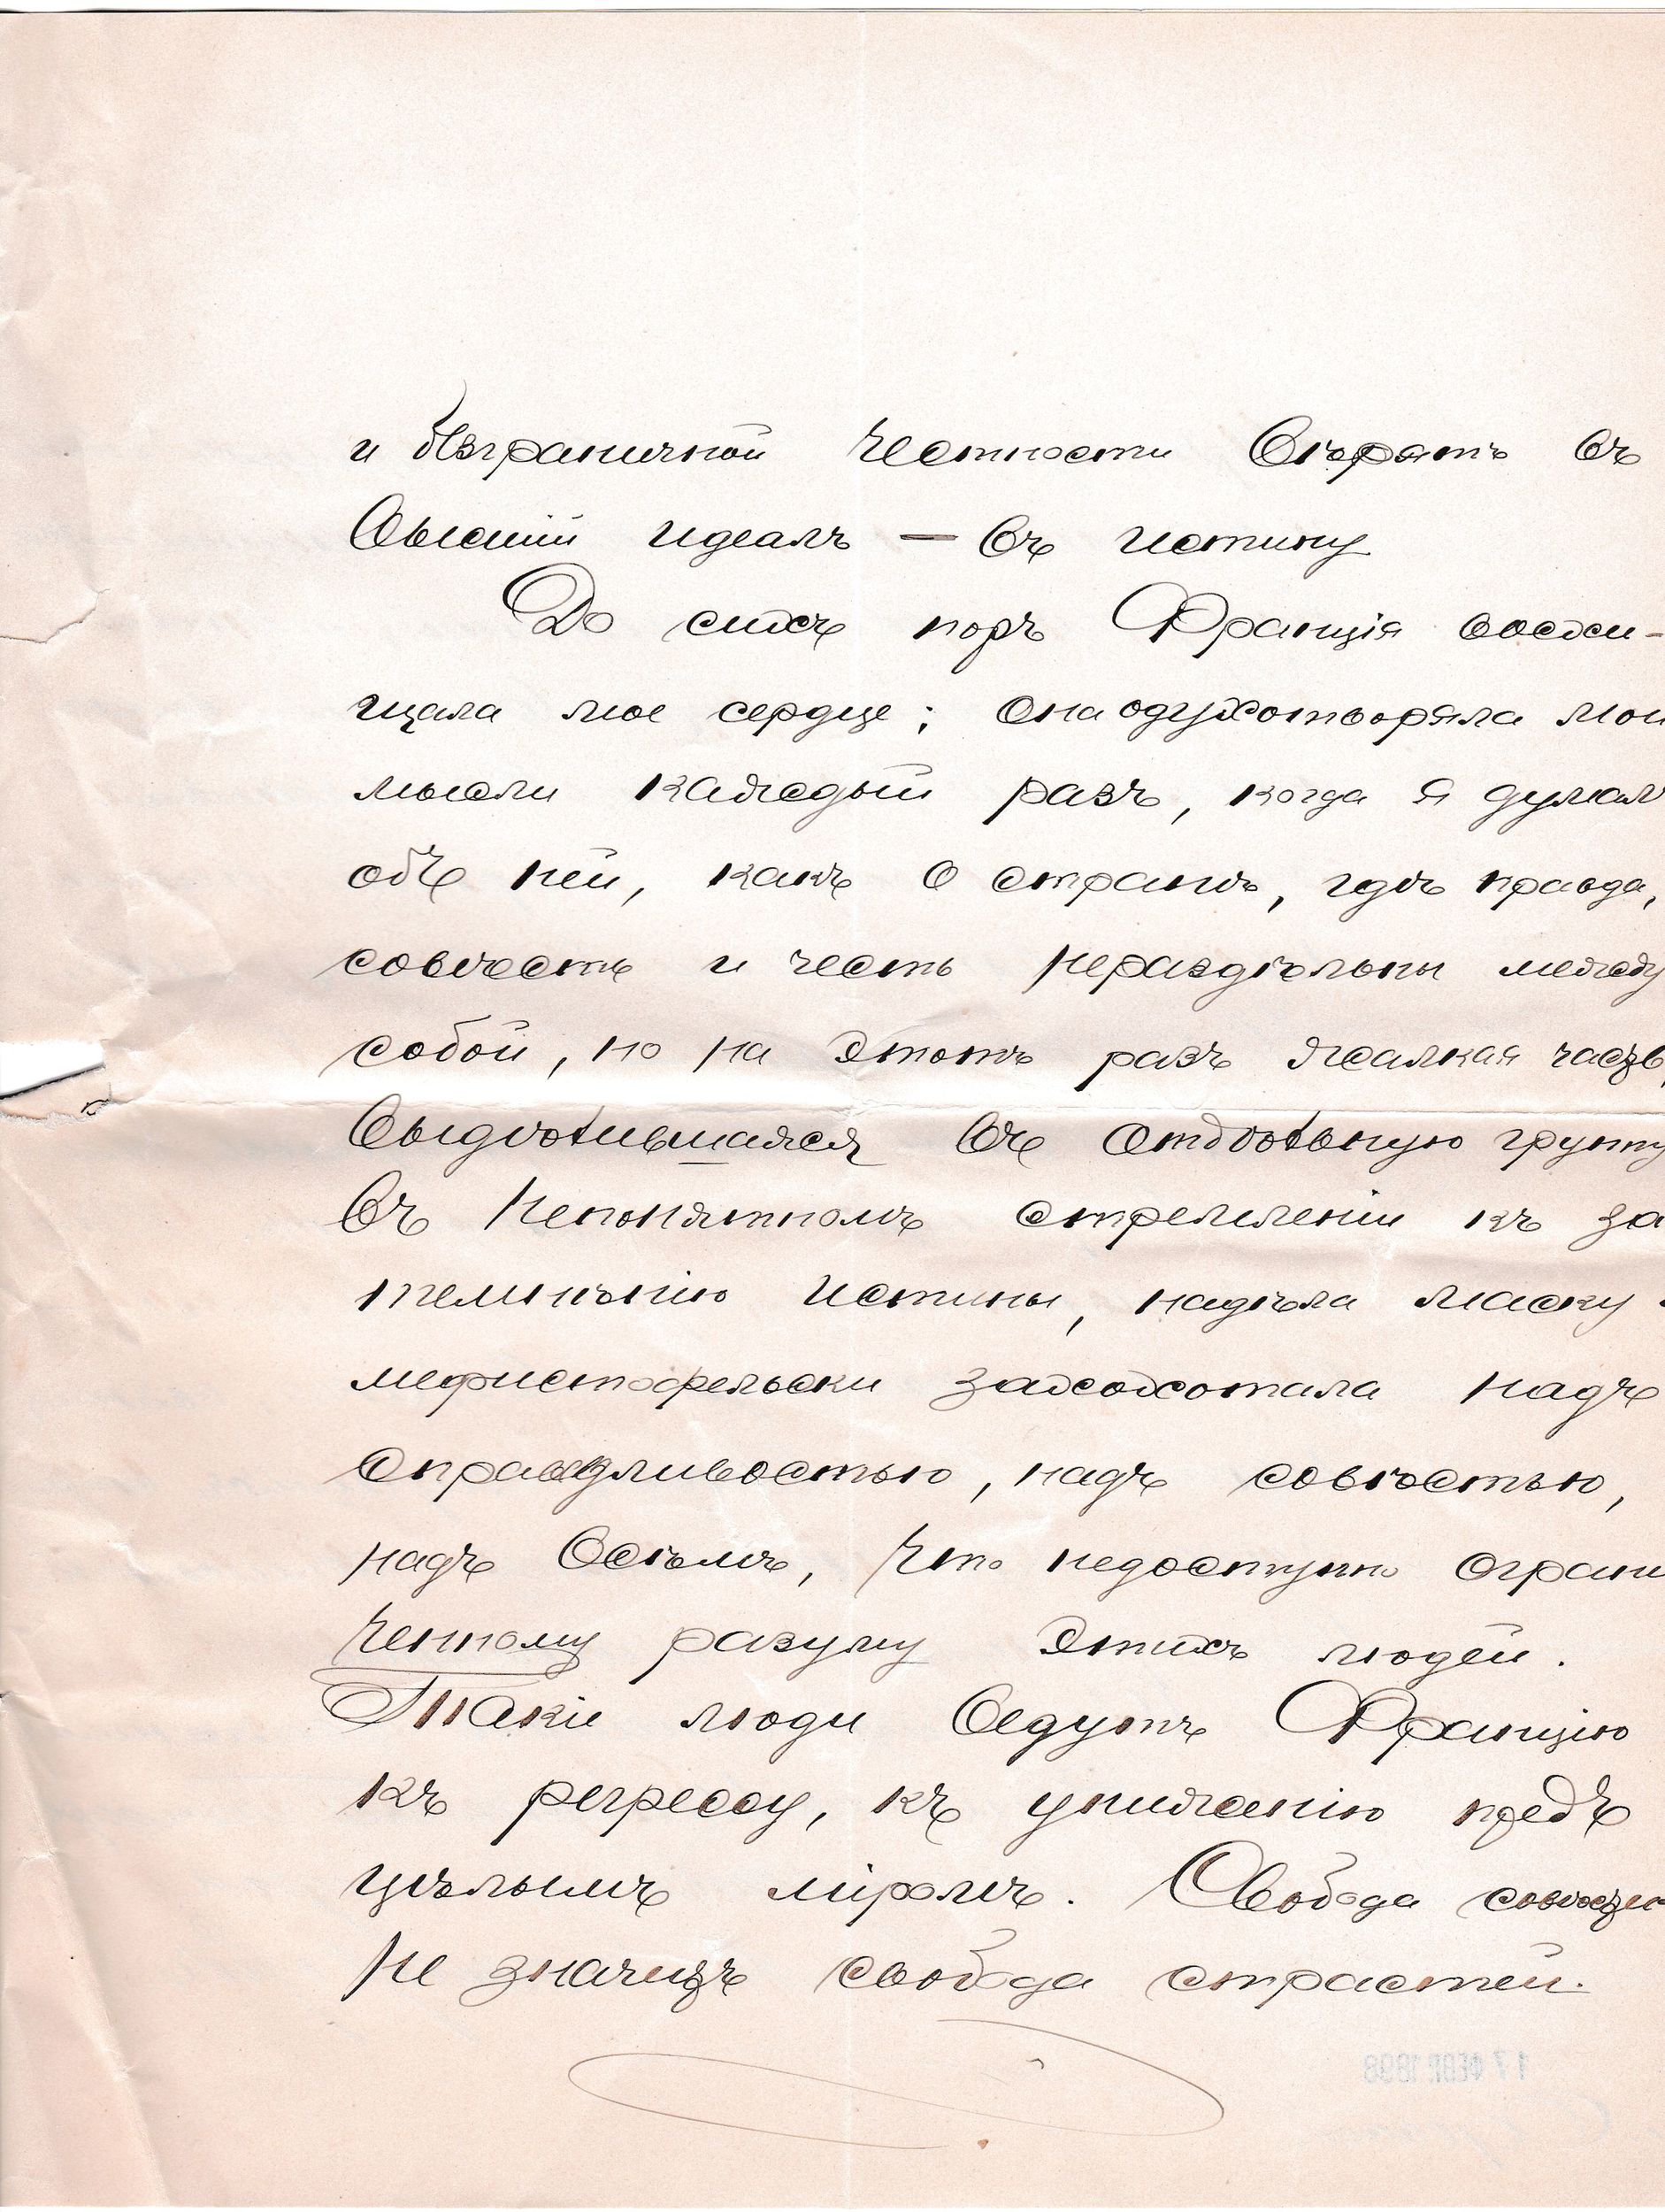 и безграничной честности вѣрятъ въ
высшій идеалъ — въ истину
До сихъ поръ Франція восхи-
щала мое сердце; она одухотворяла мои
мысли каждый разъ, когда я думал
объ ней, какъ о странѣ, гдѣ правда,
совѣсть и честь нераздѣльны между
собой, но на этотъ разъ жалкая часть,
выдѣлившаяся въ отдѣльную группу
въ непонятномъ стремленіи къ за
темнѣнію истины, надѣла маску
мефистофельски захохотала надъ
справедливостью, надъ совѣстью,
надъ всѣмъ, что недоступно ограни
ченному разуму этихъ людей.
Такіе люди ведутъ Францію
къ регрессу, къ униженію предъ
цѣлымъ міромъ. Свобода совѣсти
не значитъ свобода страстей.
17 ФЕВР. 1898